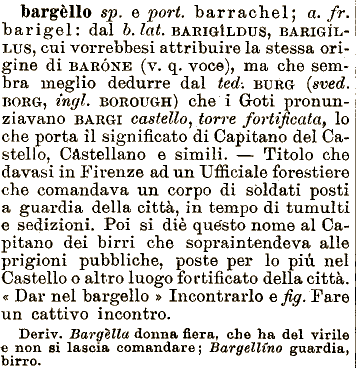 bargèllo sp. e port. barrachel; a. fr.
barigel: dal b. lat. BARIGÍLDUS, BARIGÍL-
LUS, cui vorrebbesi attribuire la stessa ori-
gine di BARÓNE (v. q. voce), ma che sem-
bra meglio dedurre dal ted. BURG (sved.
BORG, ingl. BOROUGH) che i Goti pronun-
ziavano BARGI castello, torre fortificata, lo
che porta il significato di Capitano del Ca-
stello, Castellano e simili. — Titolo che
davasi in Firenze ad un Ufficiale forestiere
che comandava un corpo di soldati posti
a guardia della città, in tempo di tumulti
e sedizioni. Poi si diè questo nome al Ca-
pitano dei birri che sopraintendeva alle
prigioni pubbliche, poste per lo più nel
Castello o altro luogo fortificato della città.
« Dar nel bargello » Incontrarlo e fig. Fare
un cattivo incontro.
Deriv. Bargèlla donna fiera, che ha del virile
e non si lascia comandare; Bargellíno guardia,
birro.